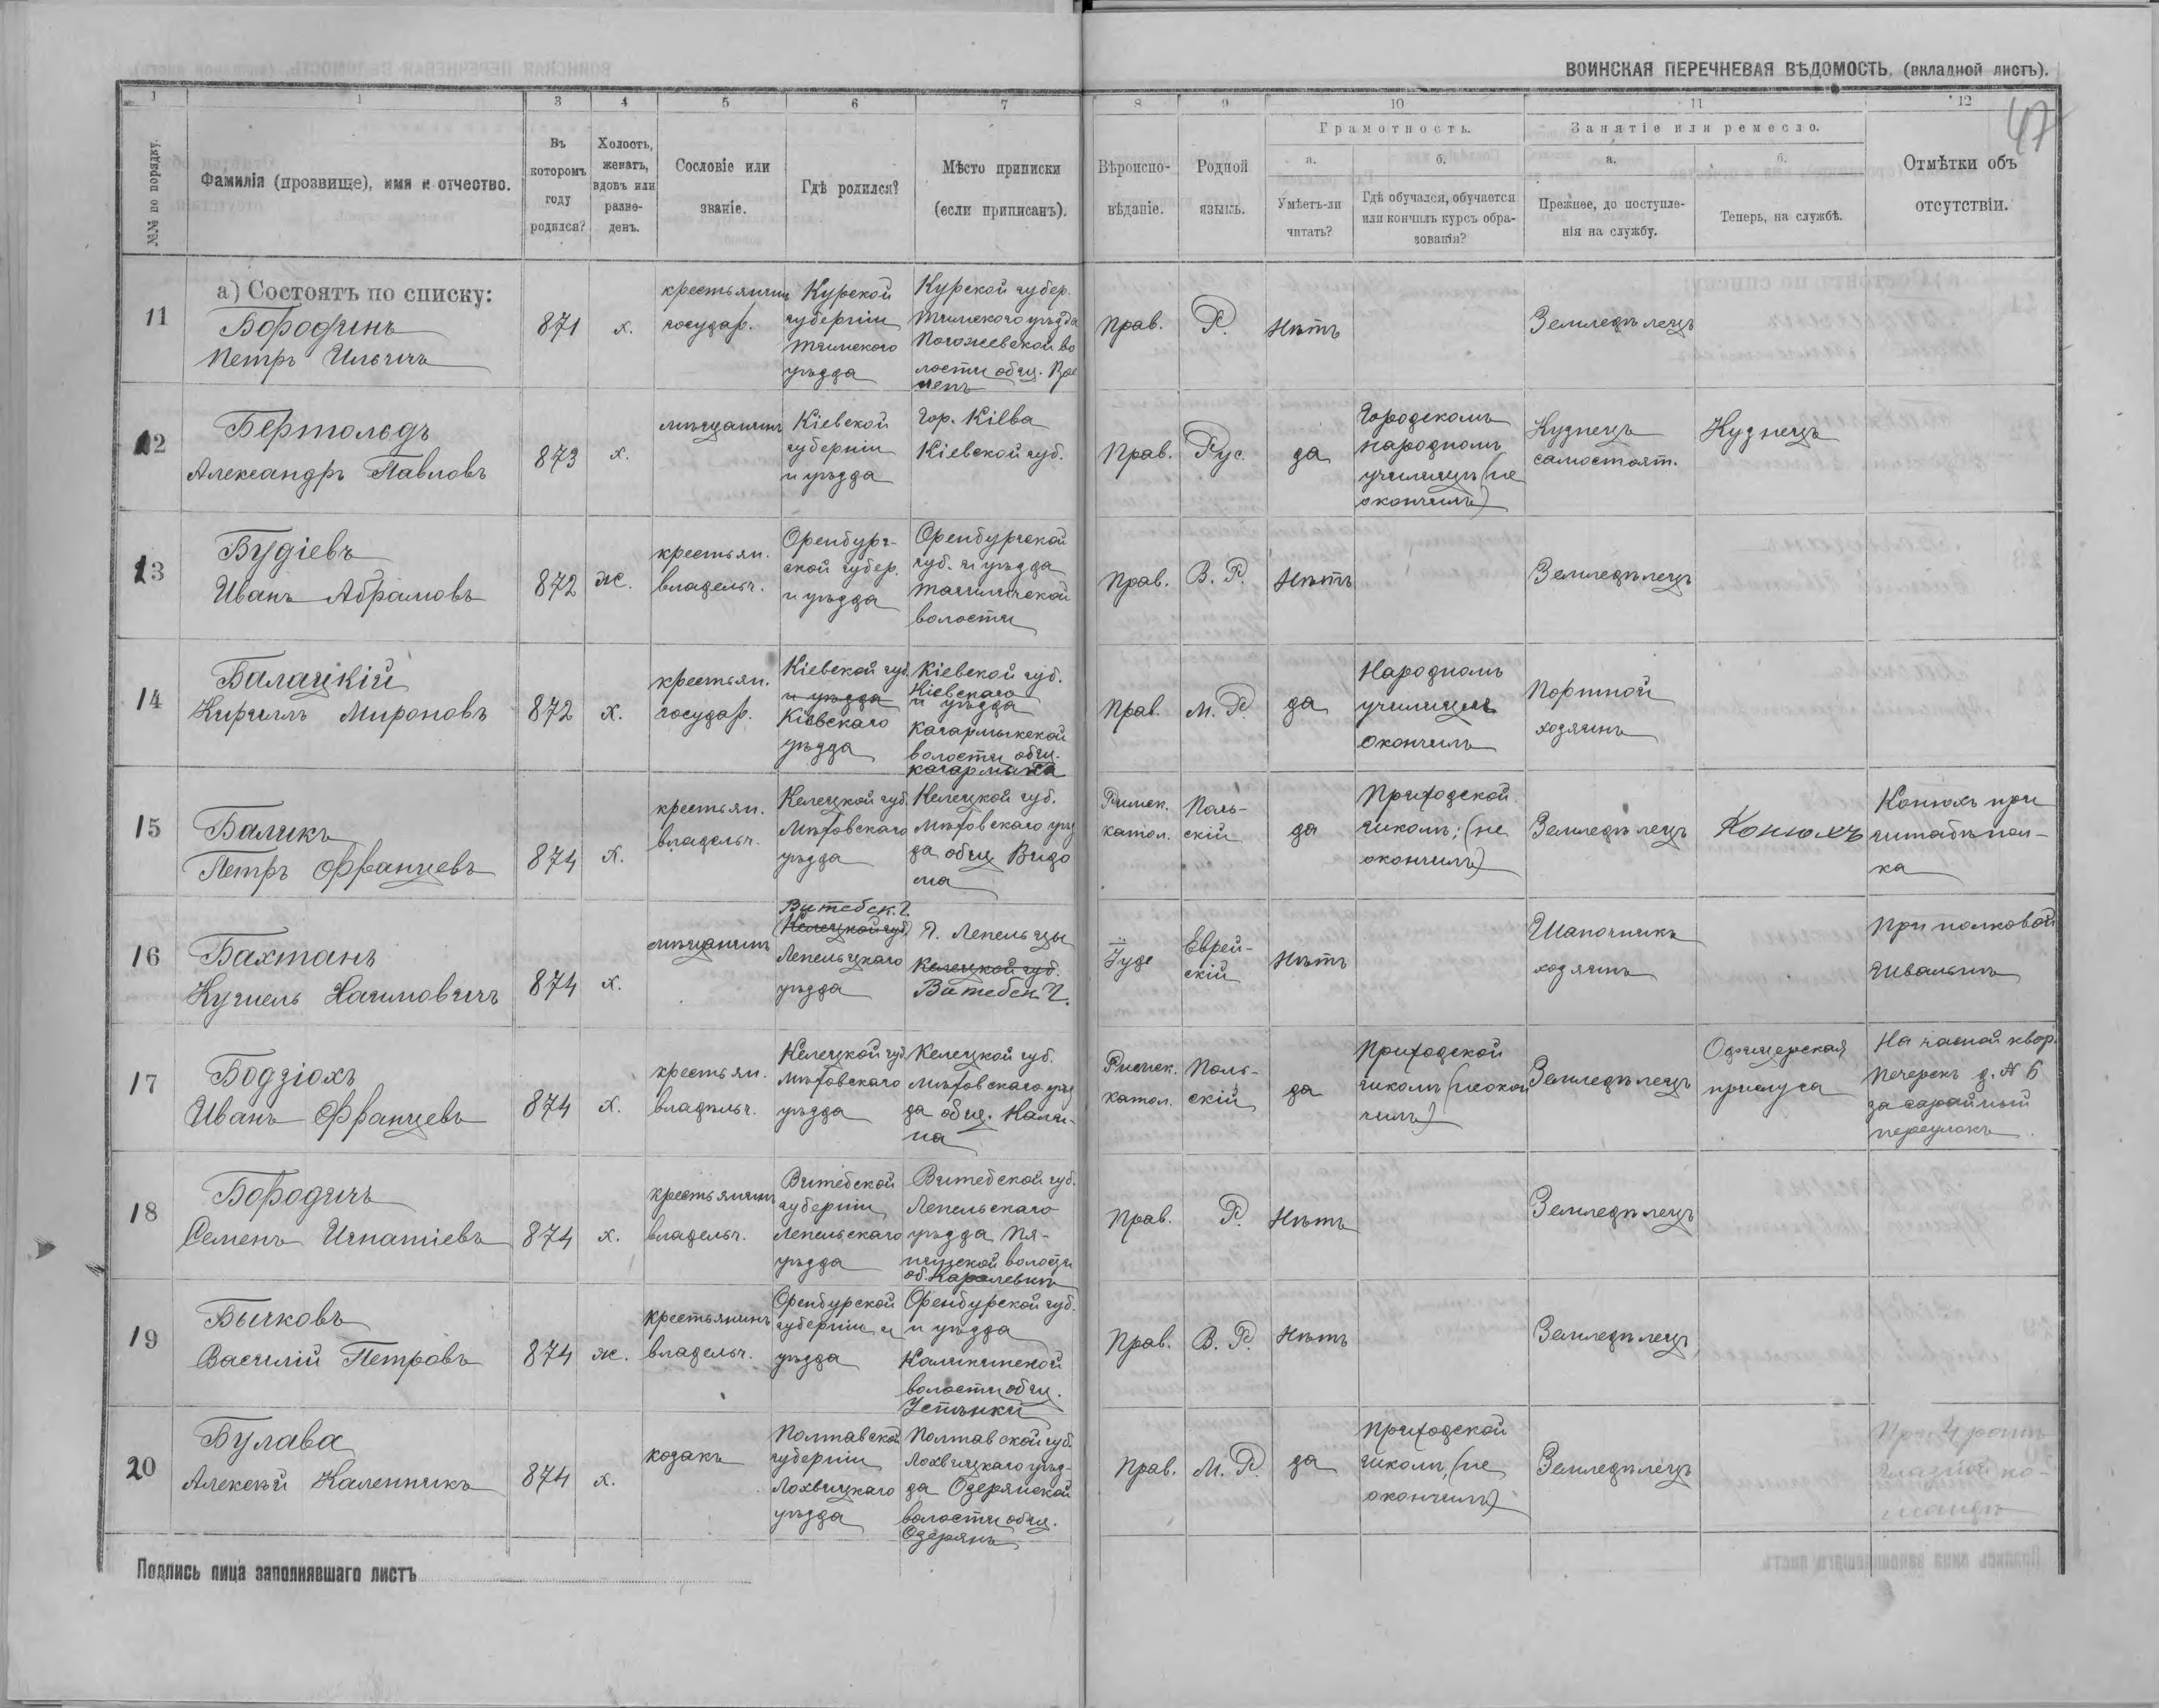 ВОИНСКАЯ ПЕРЕЧНЕВАЯ ВѢДОМОСТЬ, (вкладной листъ).
47
1 1 3 4 5 6 7 8 9 10 11 12
№№ по порядку.
Фамилія (прозвище), имя и отчество.
Въ которомъ году родился?
Холостъ, женатъ, вдовъ или разве-денъ.
Сословіе или званіе.
Гдѣ родился?
Мѣсто приписки (если приписанъ).
Вѣроиспо-вѣданіе.
Родной языкъ.
Грамотность.
а. Умѣетъ-ли читать?
б. Гдѣ обучался, обучается или кончилъ курсъ обра-зованія?
Занятіе или ремесло.
а. Прежнее, до поступле-нія на службу.
б. Теперь, на службѣ.
Отмѣтки объ отсутствіи.
а) Состоятъ по списку:
11
Бородинъ
Петръ Ильичъ
871
х.
крестьянинъ
государ.
Курской
губерніи
Тимскаго
уѣзда
Курской губер.
Тимскаго уѣзда
Погожевской во
лости общ.
Прав.
Р.
Нѣтъ
Земледѣлецъ
12
Бертольдъ
Александръ Павловъ
873
х.
мѣщанинъ
Кіевской
губерніи
и уѣзда
Гор. Кіева
Кіевской губ.
Прав.
Рус.
да
Городскомъ
народномъ
училищѣ (не
окончилъ)
Кузнецъ
самостоят.
Кузнецъ
13
Будіевъ
Иванъ Абрамовъ
872
ж.
крестьян.
владельч.
Оренбург-
ской губер.
и уѣзда
Оренбургской
губ. и уѣзда
волости
Прав.
В. Р.
Нѣтъ
Земледѣлецъ
14
Балацкій
Кириллъ Мироновъ
872
х.
крестьян.
государ.
Кіевской губ.
и уѣзда
Кіевскаго
уѣзда
Кіевской губ.
Кіевскаго
и уѣзда
Кагарлыкской
волости общ.
Кагарлыка
Прав.
М. Р.
да
Народномъ
училищѣ
окончилъ
Портной
хозяинъ
15
Баликъ
Петръ Францевъ
874
х.
крестьян.
владельч.
Келецкой губ.
Мѣховскаго
уѣзда
Келецкой губ.
Мѣховскаго уѣз
да общ Видо
ма
Римск.
катол.
Поль-
скій
да
Приходской
школѣ; (не
окончилъ)
Земледѣлецъ
Конюхъ
Конюхъ при
штабѣ пол-
ка
16
Бахтанъ
Кушель Хаимовичъ
874
х.
мѣщанинъ
Витебск. г.
Келецкой губ.
Лепельцкаго
уѣзда
Г. Лепельцы
Келецкой губ.
Витебск. г.
Іуде
Еврей-
скій
Нѣтъ
Шапочникъ
хозяинъ
При полковой
швальнѣ
17
Бодзіохъ
Иванъ Францевъ
874
х.
крестьян.
владѣльч.
Келецкой губ.
Мѣховскаго
уѣзда
Келецкой губ.
Мѣховскаго уѣз
да общ. Кали-
на
Римск.
катол.
Поль-
скій
да
Приходской
школѣ (не окон
чилъ)
Земледѣлецъ
Офицерская
прислуга
На часной квар.
Печерскъ д. № 6
за сарайный
переулокъ
18
Бородичъ
Семенъ Игнатіевъ
874
х.
крестьянинъ
владельч.
Витебской
губерніи
Лепельскаго
уѣзда
Витебской губ.
Лепельскаго
уѣзда
волости
об. Каралевичи
Прав.
Р.
Нѣтъ
Земледѣлецъ
19
Бычковъ
Василій Петровъ
874
ж.
крестьянинъ
владельч.
Оренбурской
губерніи и
уѣзда
Оренбурской губ.
и уѣзда
Каликинской
волости общ.
Прав.
В. Р.
Нѣтъ
Земледѣлецъ
20
Булава
Алексѣй Каленникъ
874
х.
козакъ
Полтавской
губерніи
Лохвицкаго
уѣзда
Полтавской губ.
Лохвицкаго уѣз-
да Озерянской
волости общ.
Озерянъ
Прав.
М. Р.
да
Приходской
школѣ, (не
окончилъ)
Земледѣлецъ
При 4 ротѣ
ко-
мандѣ
Подпись лица заполнявшаго листъ